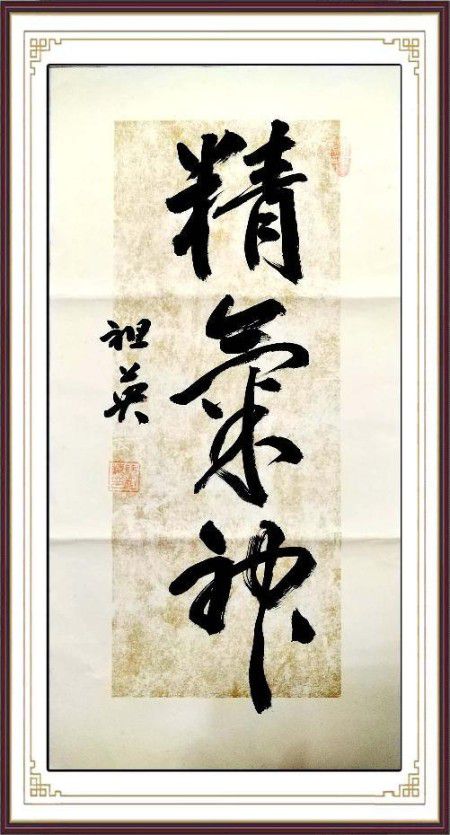 精氣神
祖英